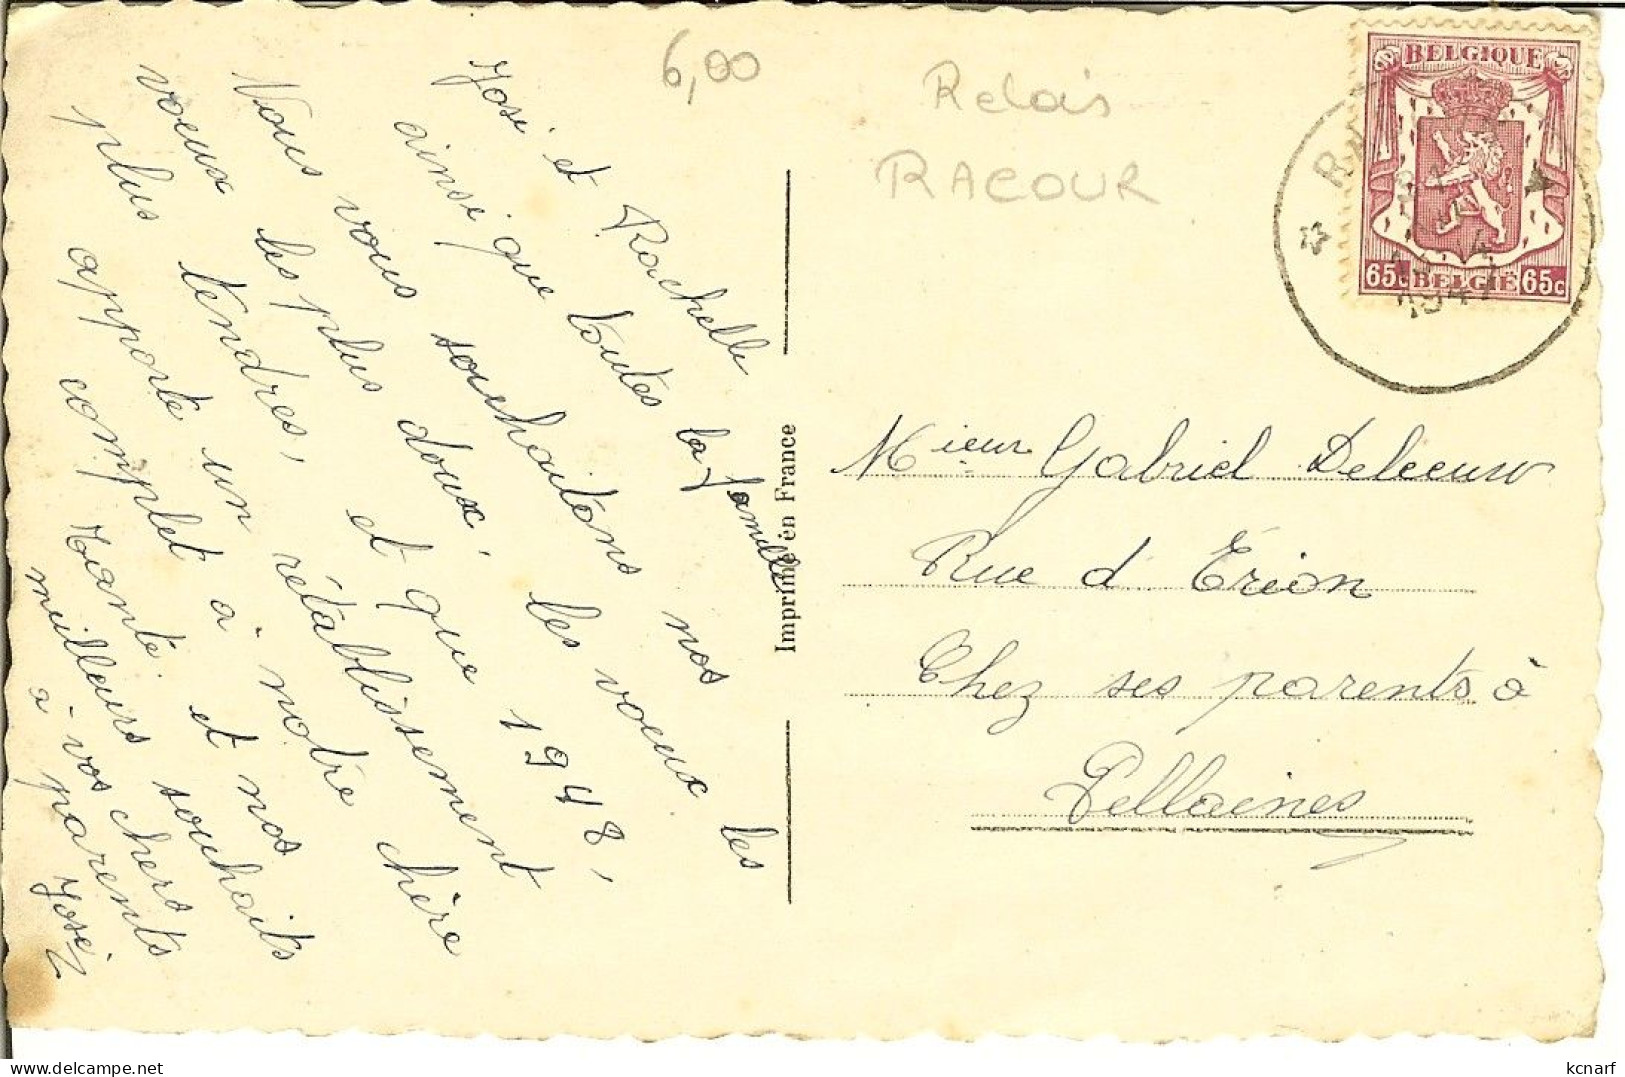 José et Rachelle
ainsi que toutes la famille
Vous vous souhaitons nos
voeux les plus doux, les voeux les
plus tendres, et que 1948,
apporte un rétablissement
complet à notre chère
Tante et nos
meilleurs souhaits
à vos chers
parents
José
6,00
Relais
RACOUR
BELGIQUE
65c BELGIË 65c
1947
Imprimé en France
Mieur Gabriel Deleeuw
Rue d'
Chez ses parents à
Pellaines
kcnarf